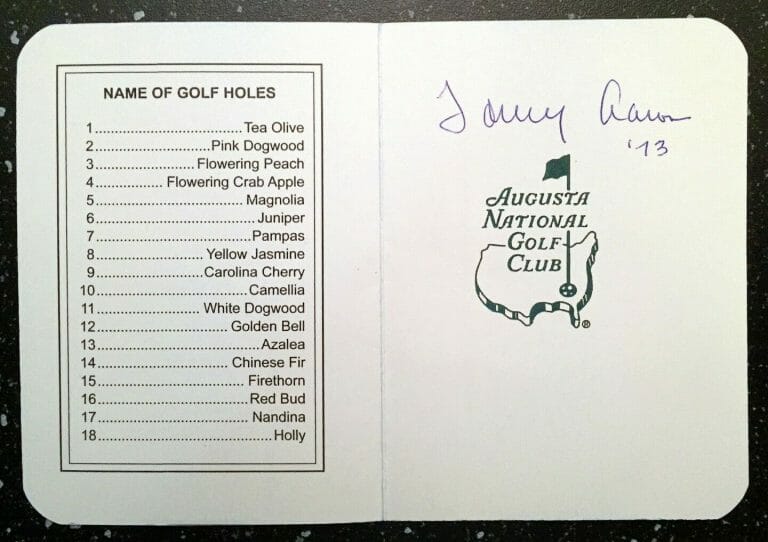 NAME OF GOLF HOLES
1..............................Tea Olive
2.......................Pink Dogwood
3....................Flowering Peach
4................ Flowering Crab Apple
5............................... Magnolia
6.................................Juniper
7................................Pampas
8...................... Yellow Jasmine
9......................Carolina Cherry
10...............................Camellia
11..................... White Dogwood
12........................... Golden Bell
13..................................Azalea
14........................... Chinese Fir
15............................... Firethorn
16............................... Red Bud
17............................... Nandina
18....................................Holly
Tommy Aaron
'73
AUGUSTA
NATIONAL
GOLF
CLUB
®